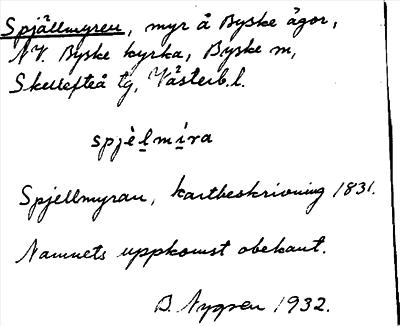 Spjällmyren, myr å Byske ägor,
NV. Byske kyrka, Byske sn,
Skellefteå tg, Västerb. l.
spjèl̲mì̲ra
Spjellmyran, kartbeskrivning 1831.
Namnets uppkomst obekant.
B. Nygren 1932.